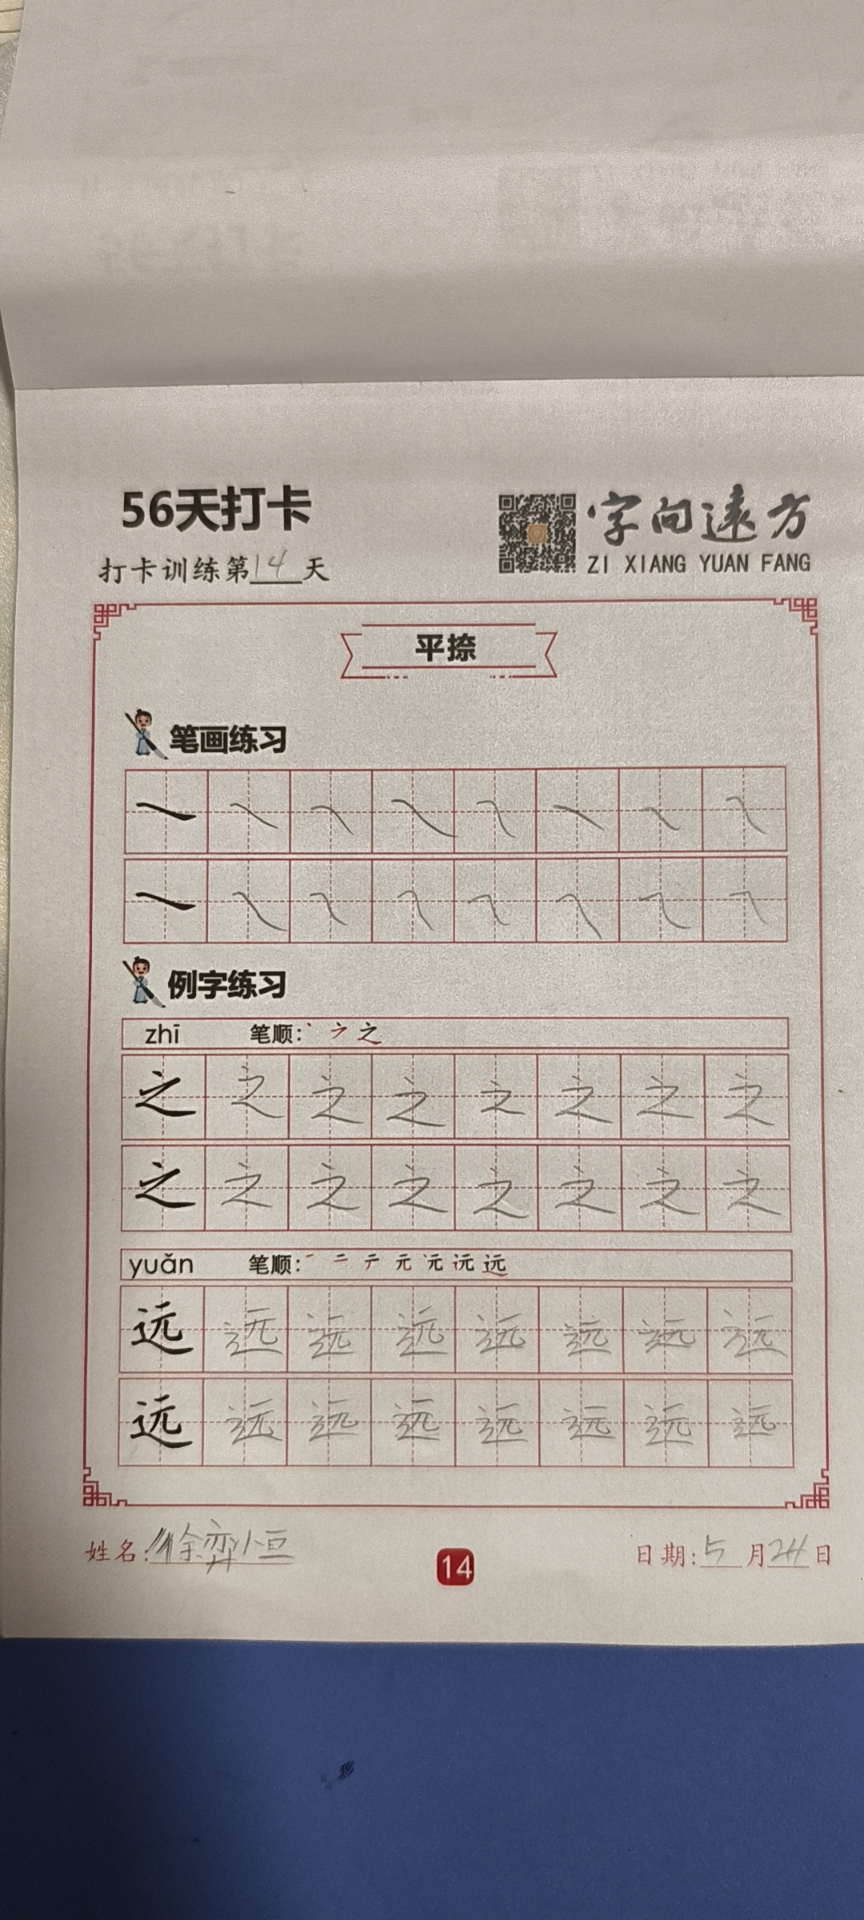 56天打卡
字向遠方
打卡训练第14天
ZI XIANG YUAN FANG
平捺
笔画练习
例字练习
zhī 笔顺:丶 之
之 之 之 之 之 之 之 之
之 之 之 之 之 之 之 之
yuǎn 笔顺:一 二 テ 元 远
远 远 远 远 远 远 远 远
远 远 远 远 远 远 远 远
姓名:徐弈恒
14
日期:5月24日